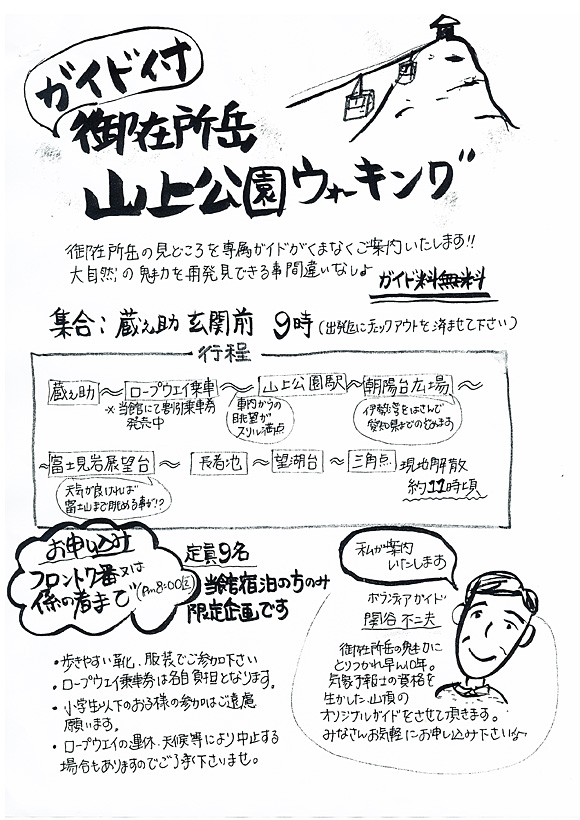 ガイド付
御在所岳
山上公園ウォーキング
御在所岳の見どころを専属ガイドがくまなくご案内いたします!!
大自然の魅力を再発見できる事間違いなしよ ガイド料無料
集合：蔵之助 玄関前 9時(出発迄にチェックアウトを済ませて下さい)
行程
蔵之助〜ロープウェイ乗車〜山上公園駅〜朝陽台広場〜
※当館にて割引乗車券
発売中
車内からの
眺望が
スリル満点
伊勢湾をはさんで
愛知県までのぞめます
〜富士見岩展望台〜長者池〜望湖台〜三角点 現地解散
約11時頃
天気が良ければ
富士山まで眺める事が!?
お申し込み
フロント7番又は
係の者まで(Pm8:00迄)
定員9名
当館宿泊の方のみ
限定企画です
私が案内
いたします
ボランティアガイド
関谷 不二夫
御在所岳の魅力に
とりつかれ早ん10年。
気象予報士の資格を
生かした山頂の
オリジナルガイドをさせて頂きます。
みなさんお気軽にお申し込み下さい
・歩きやすい靴、服装でご参加下さい
・ロープウェイ乗車券は各自負担となります。
・小学生以下のお子様の参加はご遠慮
願います。
・ロープウェイの運休、天候等により中止する
場合もありますのでご了承下さいませ。